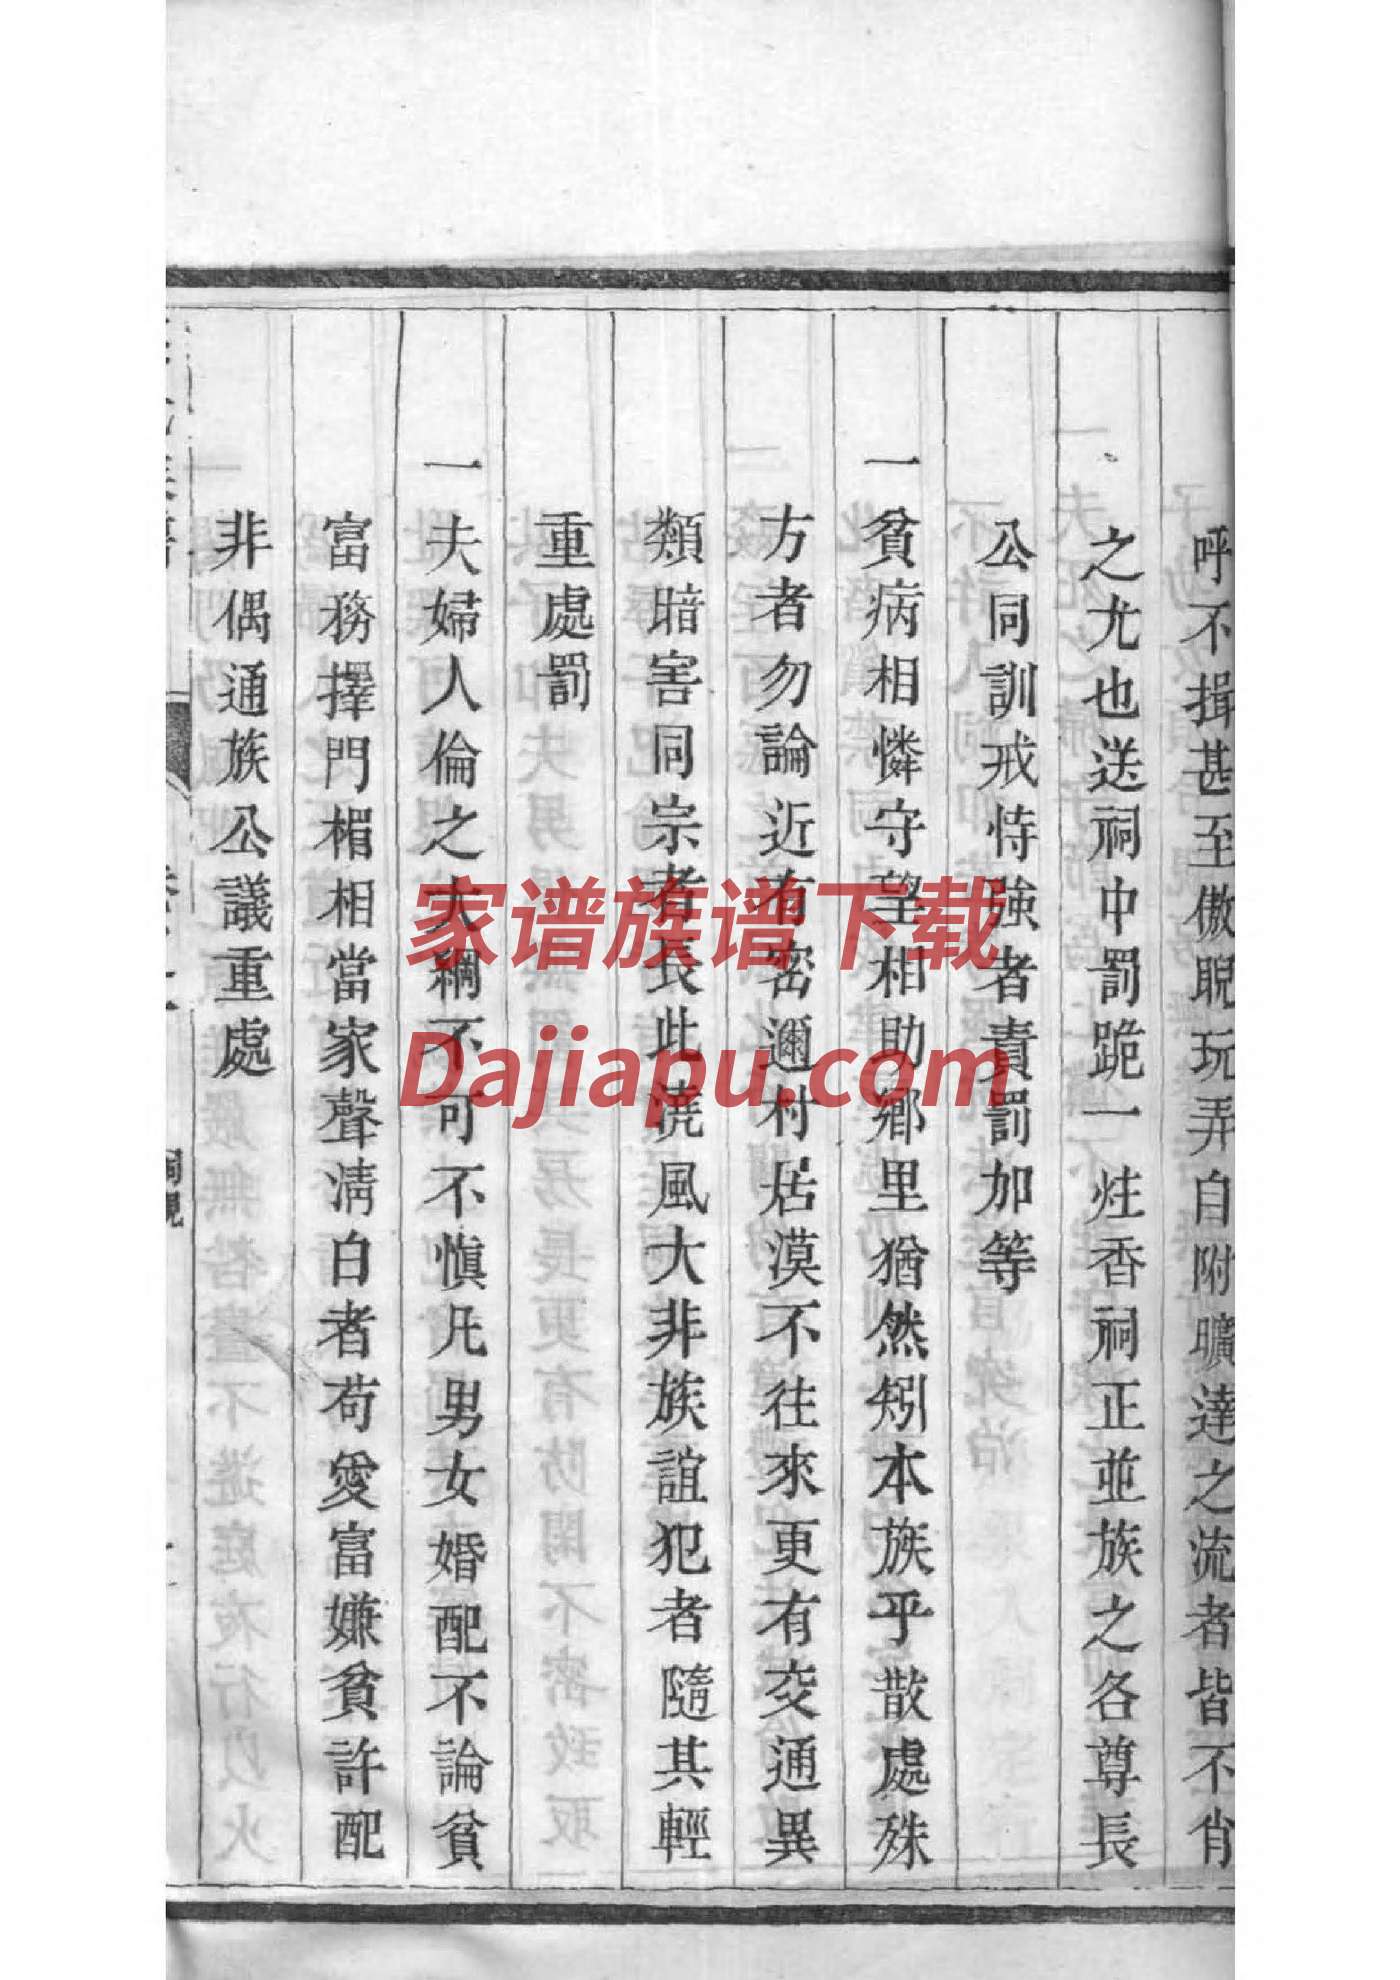 呼不揖甚至傲睨玩弄自附曠達之流者皆不肖
之尤也送祠中罰跪一炷香祠正並族之各尊長
公同訓戒恃強者責罰加等
一貧病相憐守望相助鄉里猶然矧本族乎散處殊
方者勿論近有密邇村居漠不往來更有交通異
類暗害同宗者長此澆風大非族誼犯者隨其輕
重處罰
一夫婦人倫之大綱不可不愼凡男女婚配不論貧
富務擇門楣相當家聲淸白者苟愛富嫌貧許配
非偶通族公議重處
祠規
家谱族谱下载
Dajiapu.com